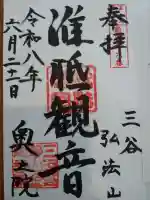 奉拝
三谷
弘法山
准胝観音
奥之院
令和八年
六月二十二日